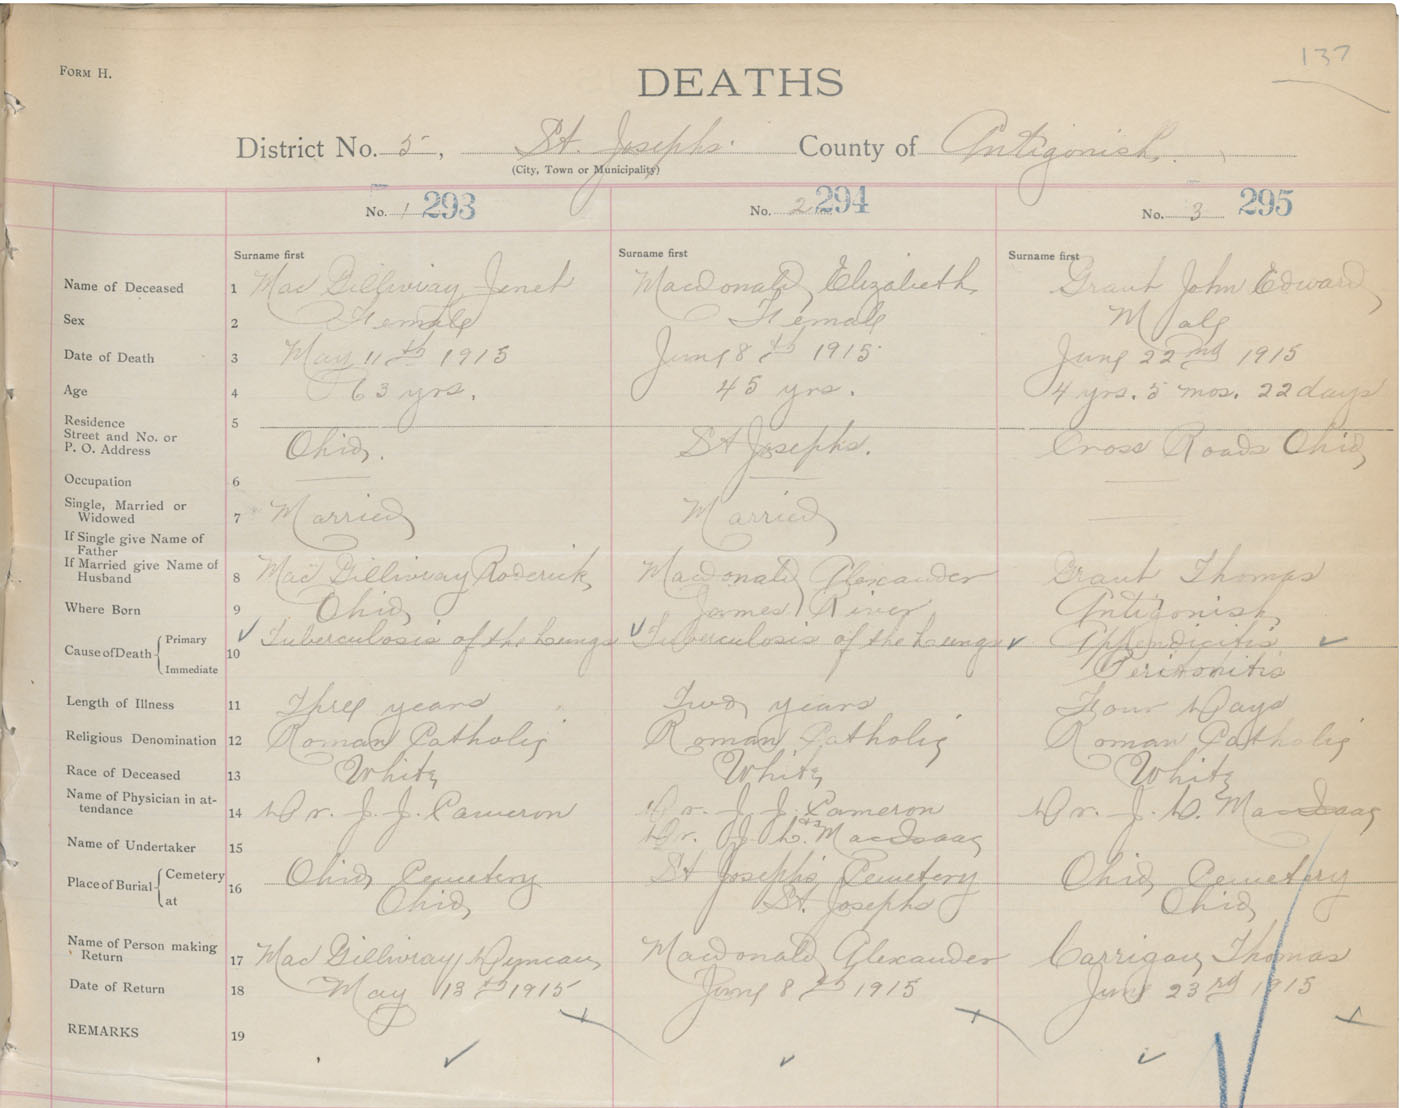 137
Form H.
DEATHS
District No. 5, St. Josephs. County of Antigonish.
(City, Town or Municipality)
No. 1 293
No. 2 294
No. 3 295
Surname first
Surname first
Surname first
Name of Deceased 1 MacGillivray Jenet Macdonald, Elizabeth Grant John Edward
Sex 2 Female Female Male
Date of Death 3 May 11th 1915 June 8th 1915. June 22nd 1915
Age 4 63 yrs. 45 yrs. 4 yrs. 5 mos. 22 days
Residence 5
Street and No. or
P. O. Address Ohio. St Josephs. Cross Roads Ohio
Occupation 6
Single, Married or
Widowed 7 Married Married
If Single give Name of
Father
If Married give Name of
Husband 8 MacGillivray Roderick Macdonald, Alexander Grant Thomas
Where Born 9 Ohio James River Antigonish
Cause of Death Primary 10 Tuberculosis of the Lungs Tuberculosis of the Lungs Appendicitis
Immediate Peritonitis
Length of Illness 11 Three years Two years Four Days
Religious Denomination 12 Roman Catholic Roman Catholic Roman Catholic
Race of Deceased 13 White White White
Name of Physician in at-
tendance 14 Dr. J. J. Cameron Dr. J. J. Cameron Dr. J. L. MacIsaac
Dr. J. L. MacIsaac
Name of Undertaker 15
Place of Burial Cemetery 16 Ohio Cemetery St Joseph's Cemetery Ohio Cemetery
at Ohio St. Josephs Ohio
Name of Person making
Return 17 MacGillivray Duncan Macdonald Alexander Carrigan, Thomas
Date of Return 18 May 13th 1915 June 8th 1915 June 23rd 1915
REMARKS 19